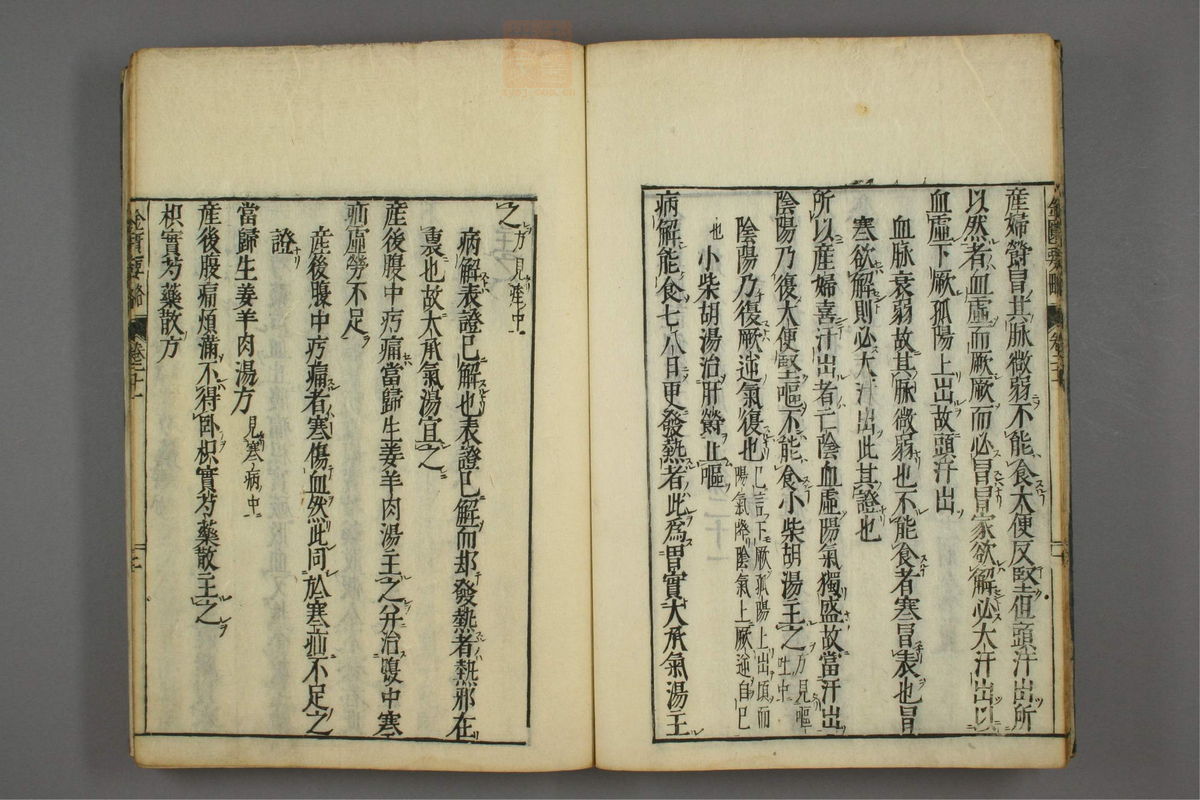 産婦欝冒其脉微弱不能食大便反堅但頭汗出所
以然者血虚而厥厥而必冒冒家欲解必大汗出以
血虚下厥孤陽上出故頭汗出
血脉衰弱故其脉微弱也不能食者寒冒表也冒
寒欲解則必大汗出此其證也
所以産婦喜汗出者亡陰血虚陽氣獨盛故當汗出
陰陽乃復大便堅嘔不能食小柴胡湯主之方見嘔吐中
陰陽乃復厥逆氣復也已言下厥孤陽上出頃而陽氣降陰氣上厥逆自已
也小柴胡湯治肝欝止嘔
病解能食七八日更發熱者此爲胃實大承氣湯主
之方見痓中
病解表證已解也表證已解而却發熱者熱邪在
裏也故大承氣湯宜之
産後腹中㽲痛當歸生姜羊肉湯主之并治腹中寒
疝虚勞不足
産後腹中㽲痛者寒傷血然此同於寒疝不足之
證
當歸生姜羊肉湯方見寒病中
産後腹痛煩滿不得卧枳實芍藥散主之
枳實芍藥散方